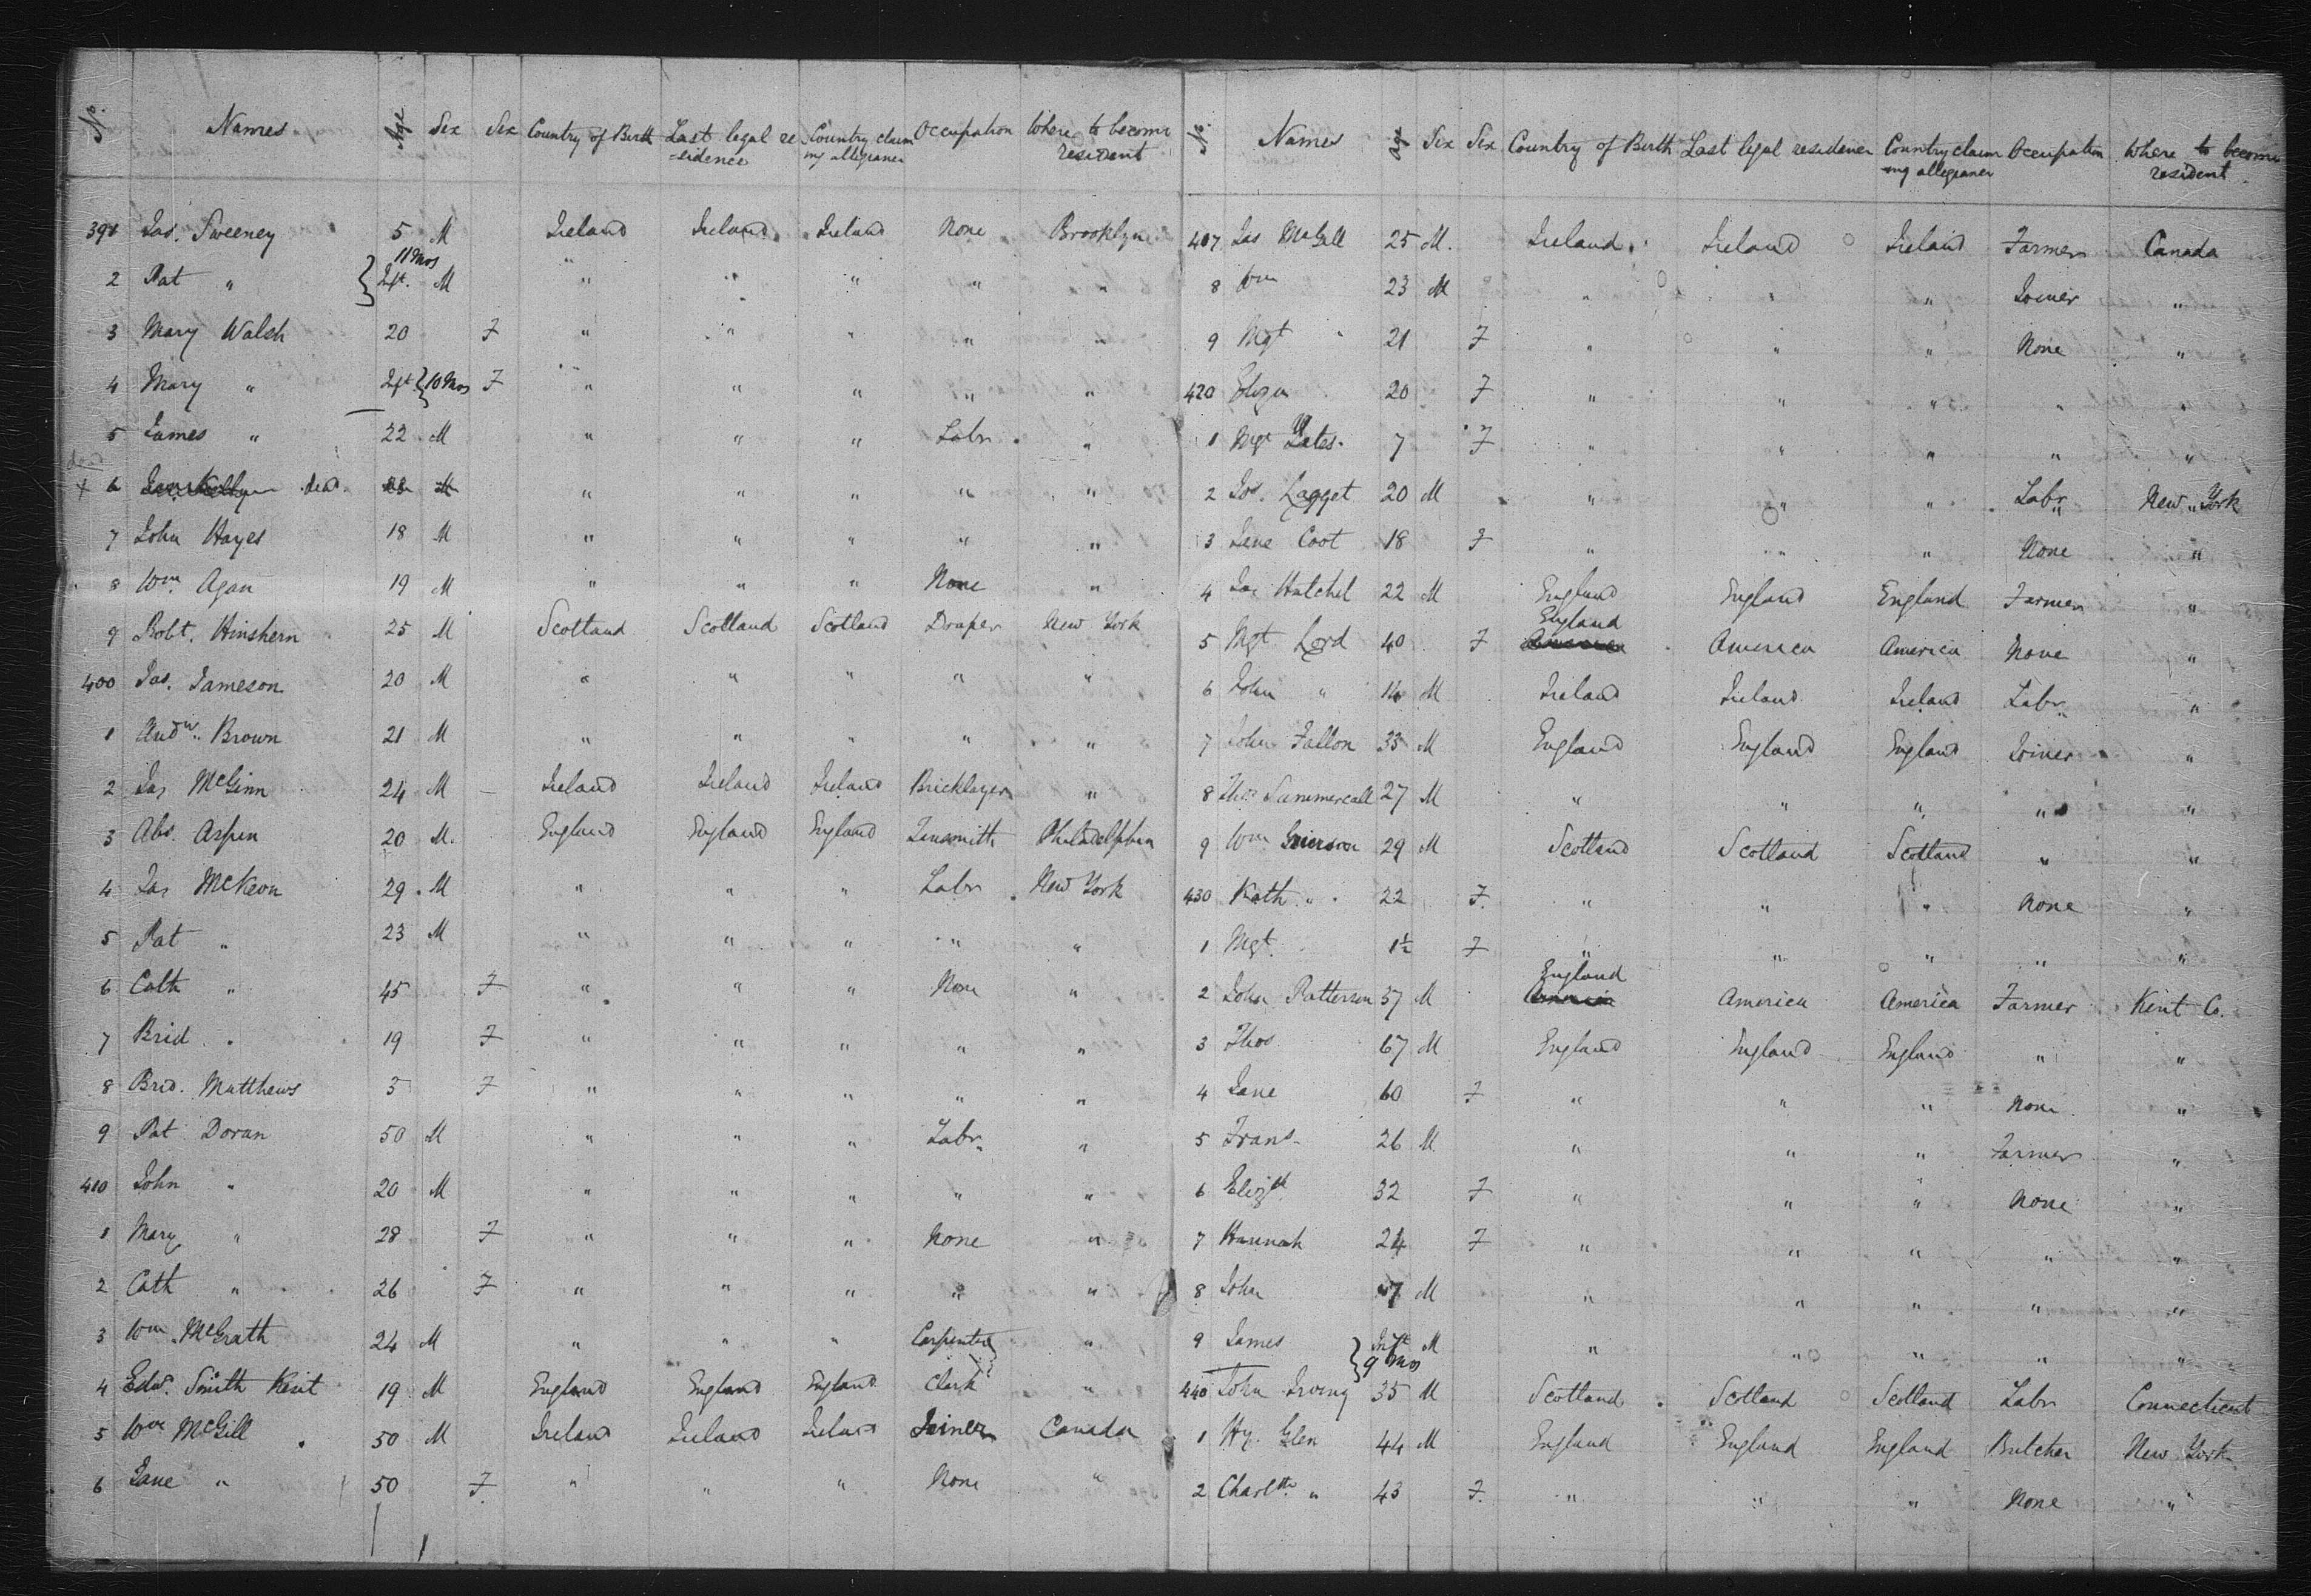 No. Names Age Sex Sex Country of Birth Last legal re Country claim Occupation Where to become
sidence ing allegiance resident
391 Jas. Sweeney 5 M Ireland Ireland Ireland None Brooklyn
11 Mos
2 Pat " } Inft. M " " " " "
3 Mary Walsh 20 F " " " " "
4 Mary " Inft } 10 Mos F " " " " "
5 James " 22 M " " " Labr "
6 Kelly dead 28 M " " " " "
7 John Hayes 18 M " " " " "
8 Wm. Agan 19 M " " " None "
9 Robt. Hinshern 25 M Scotland Scotland Scotland Draper New York
400 Jas. Jameson 20 M " " " " "
1 Andw. Brown 21 M " " " " "
2 Jas McGinn 24 M Ireland Ireland Ireland Bricklayer "
3 Abs. Aspen 20 M England England England Tinsmith Philadelphia
4 Jas McKeon 29 M " " " Labr New York
5 Pat " 23 M " " " " "
6 Cath " 45 F " " " None "
7 Brid " 19 F " " " " "
8 Brid. Matthews 3 F " " " " "
9 Pat Doran 50 M " " " Labr "
410 John " 20 M " " " " "
1 Mary " 28 F " " " None "
2 Cath " 26 F " " " " "
3 Wm McGrath 24 M " " " Carpenter "
4 Edw. Smith Kent 19 M England England England Clerk "
5 Wm McGill 50 M Ireland Ireland Ireland Joiner Canada
6 Jane " 50 F " " " None "
No. Names Age Sex Sex Country of Birth Last legal residence Country claim Occupation Where to become
ing allegiance resident
417 Jas McGill 25 M. Ireland Ireland Ireland Farmer Canada
8 Wm 23 M " " " Joiner "
9 Mgt " 21 F " " " None "
420 Eliza 20 F " " " " "
1 Mgt Yates 7 F " " " " "
2 Jos. Legget 20 M " " " Labr New York
3 Jane Coot 18 F " " " None "
4 Jas Hatchel 22 M England England England Farmer "
England
5 Mgt Lord 40 F America America America None "
6 John " 14 M Ireland Ireland Ireland Labr "
7 John Fallon 33 M England England England Joiner "
8 Thos Summercall 27 M " " " " "
9 Wm Grierson 29 M Scotland Scotland Scotland " "
430 Kath " 22 F. " " " None "
1 Mgt. 1½ F " " " " "
England
2 John Patterson 37 M America America America Farmer Kent Co.
3 Thos 67 M England England England " "
4 Jane 60 F " " " None "
5 Frans 26 M " " " Farmer "
6 Elizth 32 F " " " None "
7 Hannah 24 F " " " " "
8 John 7 M " " " " "
9 James } Inft M " " " " "
9 Mos
440 John Irving 35 M Scotland Scotland Scotland Labr Connecticut
1 Hy. Glen 44 M England England England Butcher New York
2 Charltte " 43 F. " " " None "